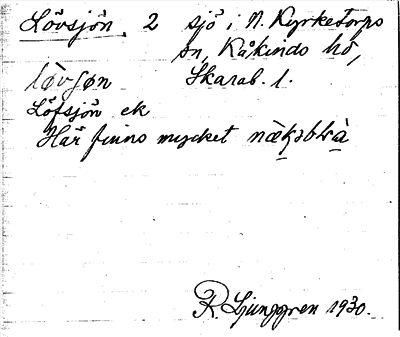 Lövsjön 2 sjö i N. Kyrketorps
sn, Kåkinds hd,
lövʃøn Skarab. l.
Löfsjön ek
Här finns mycket
R. Ljunggren 1930.